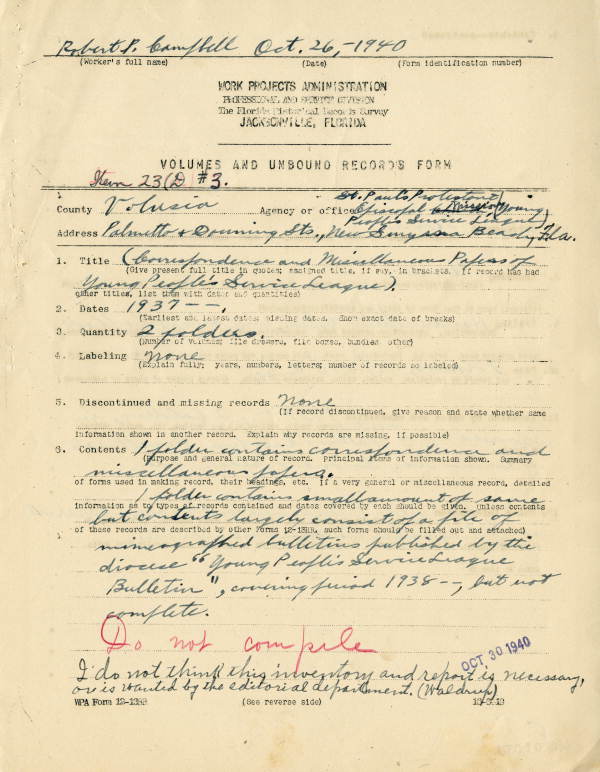 Robert P. Campbell Oct. 26,-1940
(Worker's full name) (Date) (Form identification number)
WORK PROJECTS ADMINISTRATION
PROFESSIONAL AND SERVICE DIVISION
The Florida Historical Records Survey
JACKSONVILLE, FLORIDA
VOLUMES AND UNBOUND RECORDS FORM
Item 23(D) #3.
St. Paul's Protestant
County Volusia Agency or office Episcopal Mission (Young
People's Service League)
Address Palmetto & Downing Sts., New Smyrna Beach, Fla.
1. Title (Correspondence and Miscellaneous Papers of
(Give present full title in quotes; assigned title, if any, in brackets. If record has had
Young People's Service League).
other titles, list them with dates and quantities)
2. Dates 1937--.
(Earliest and latest dates; missing dates. Show exact date of breaks)
3. Quantity 2 folders.
(Number of volumes; file drawers, file boxes, bundles, other)
4. Labeling None
(Explain fully; years, numbers, letters; number of records so labeled)
5. Discontinued and missing records None
(If record discontinued, give reason and state whether same
information shown in another record. Explain why records are missing, if possible)
6. Contents 1 folder contains correspondence and
(Purpose and general nature of record. Principal items of information shown. Summary
miscellaneous papers.
of forms used in making record, their headings, etc. If a very general or miscellaneous record, detailed
1 folder contains small amount of same
information as to types of records contained and dates covered by each should be given. Unless contents
but contents largely consist of a file of
of these records are described by other Forms 12-13HR, such forms should be filled out and attached)
mimeographed bulletins published by the
diocese "Young People's Service League
Bulletin", covering period 1938--, but not
complete.
Do not compile
OCT 30 1940
I do not think this inventory and report is necessary,
or is wanted by the editorial department. (Waldrup)
WPA Form 12-13HR (See reverse side)